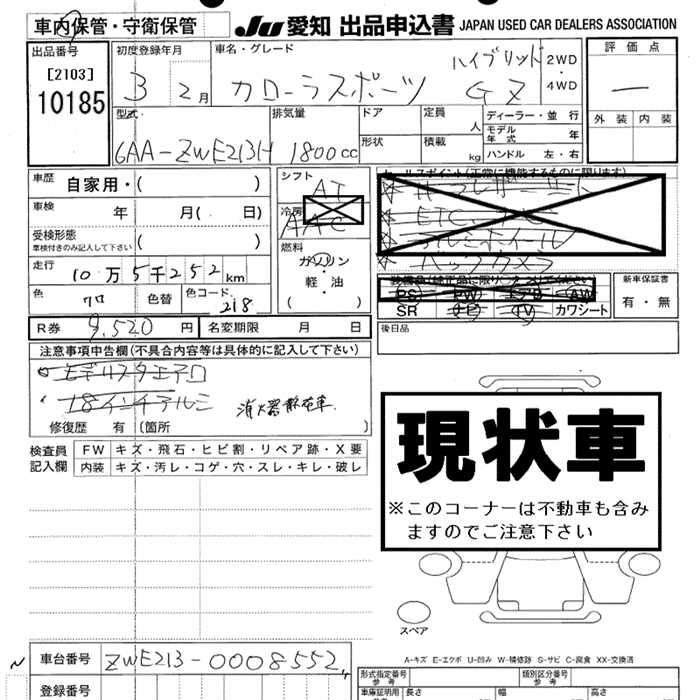 車内保管・守衛保管
JU 愛知 出品申込書 JAPAN USED CAR DEALERS ASSOCIATION
出品番号
[2103]
10185
初度登録年月
3 2月
車名・グレード
カローラスポーツ
ハイブリッド
GZ
2WD
・
4WD
評価点
ー
外装 内装
型式
6AA-ZWE213H
排気量
1800cc
ドア
形状
定員
人
積載
kg
ディーラー・並行
モデル年式 年
ハンドル 左・右
車歴 自家用・( )
車検 年 月( 日)
受検形態
車検付きのみ記入して下さい
( )
走行 10万5千252km
色 クロ 色替 色コード 218
シフト
AT
冷房
AAC
燃料
ガソリン
・
軽・油
( )
セールスポイント(正常に機能するものに限ります)
ETC
アルミホイール
バックカメラ
PS PW エアB AW
SR ナビ TV カワシート
新車保証書
有・無
R券 9,520円 名変期限 月 日
後日品
注意事項申告欄(不具合内容等は具体的に記入して下さい)
モデリスタエアロ
18インチアルミ
消火器散布車
修復歴 有(箇所 )
検査員
記入欄
FW キズ・飛石・ヒビ割・リペア跡・X要
内装 キズ・汚レ・コゲ・穴・スレ・キレ・破レ
現状車
※このコーナーは不動車も含み
ますのでご注意下さい
スペア
A-キズ E-エクボ U-凹み W-補修跡 S-サビ C-腐食 XX-交換済
車台番号 ZWE213-0008552
登録番号
形式指定番号
参考
類別区分番号
参考
車庫証明用
参考
長さ 幅 高さ